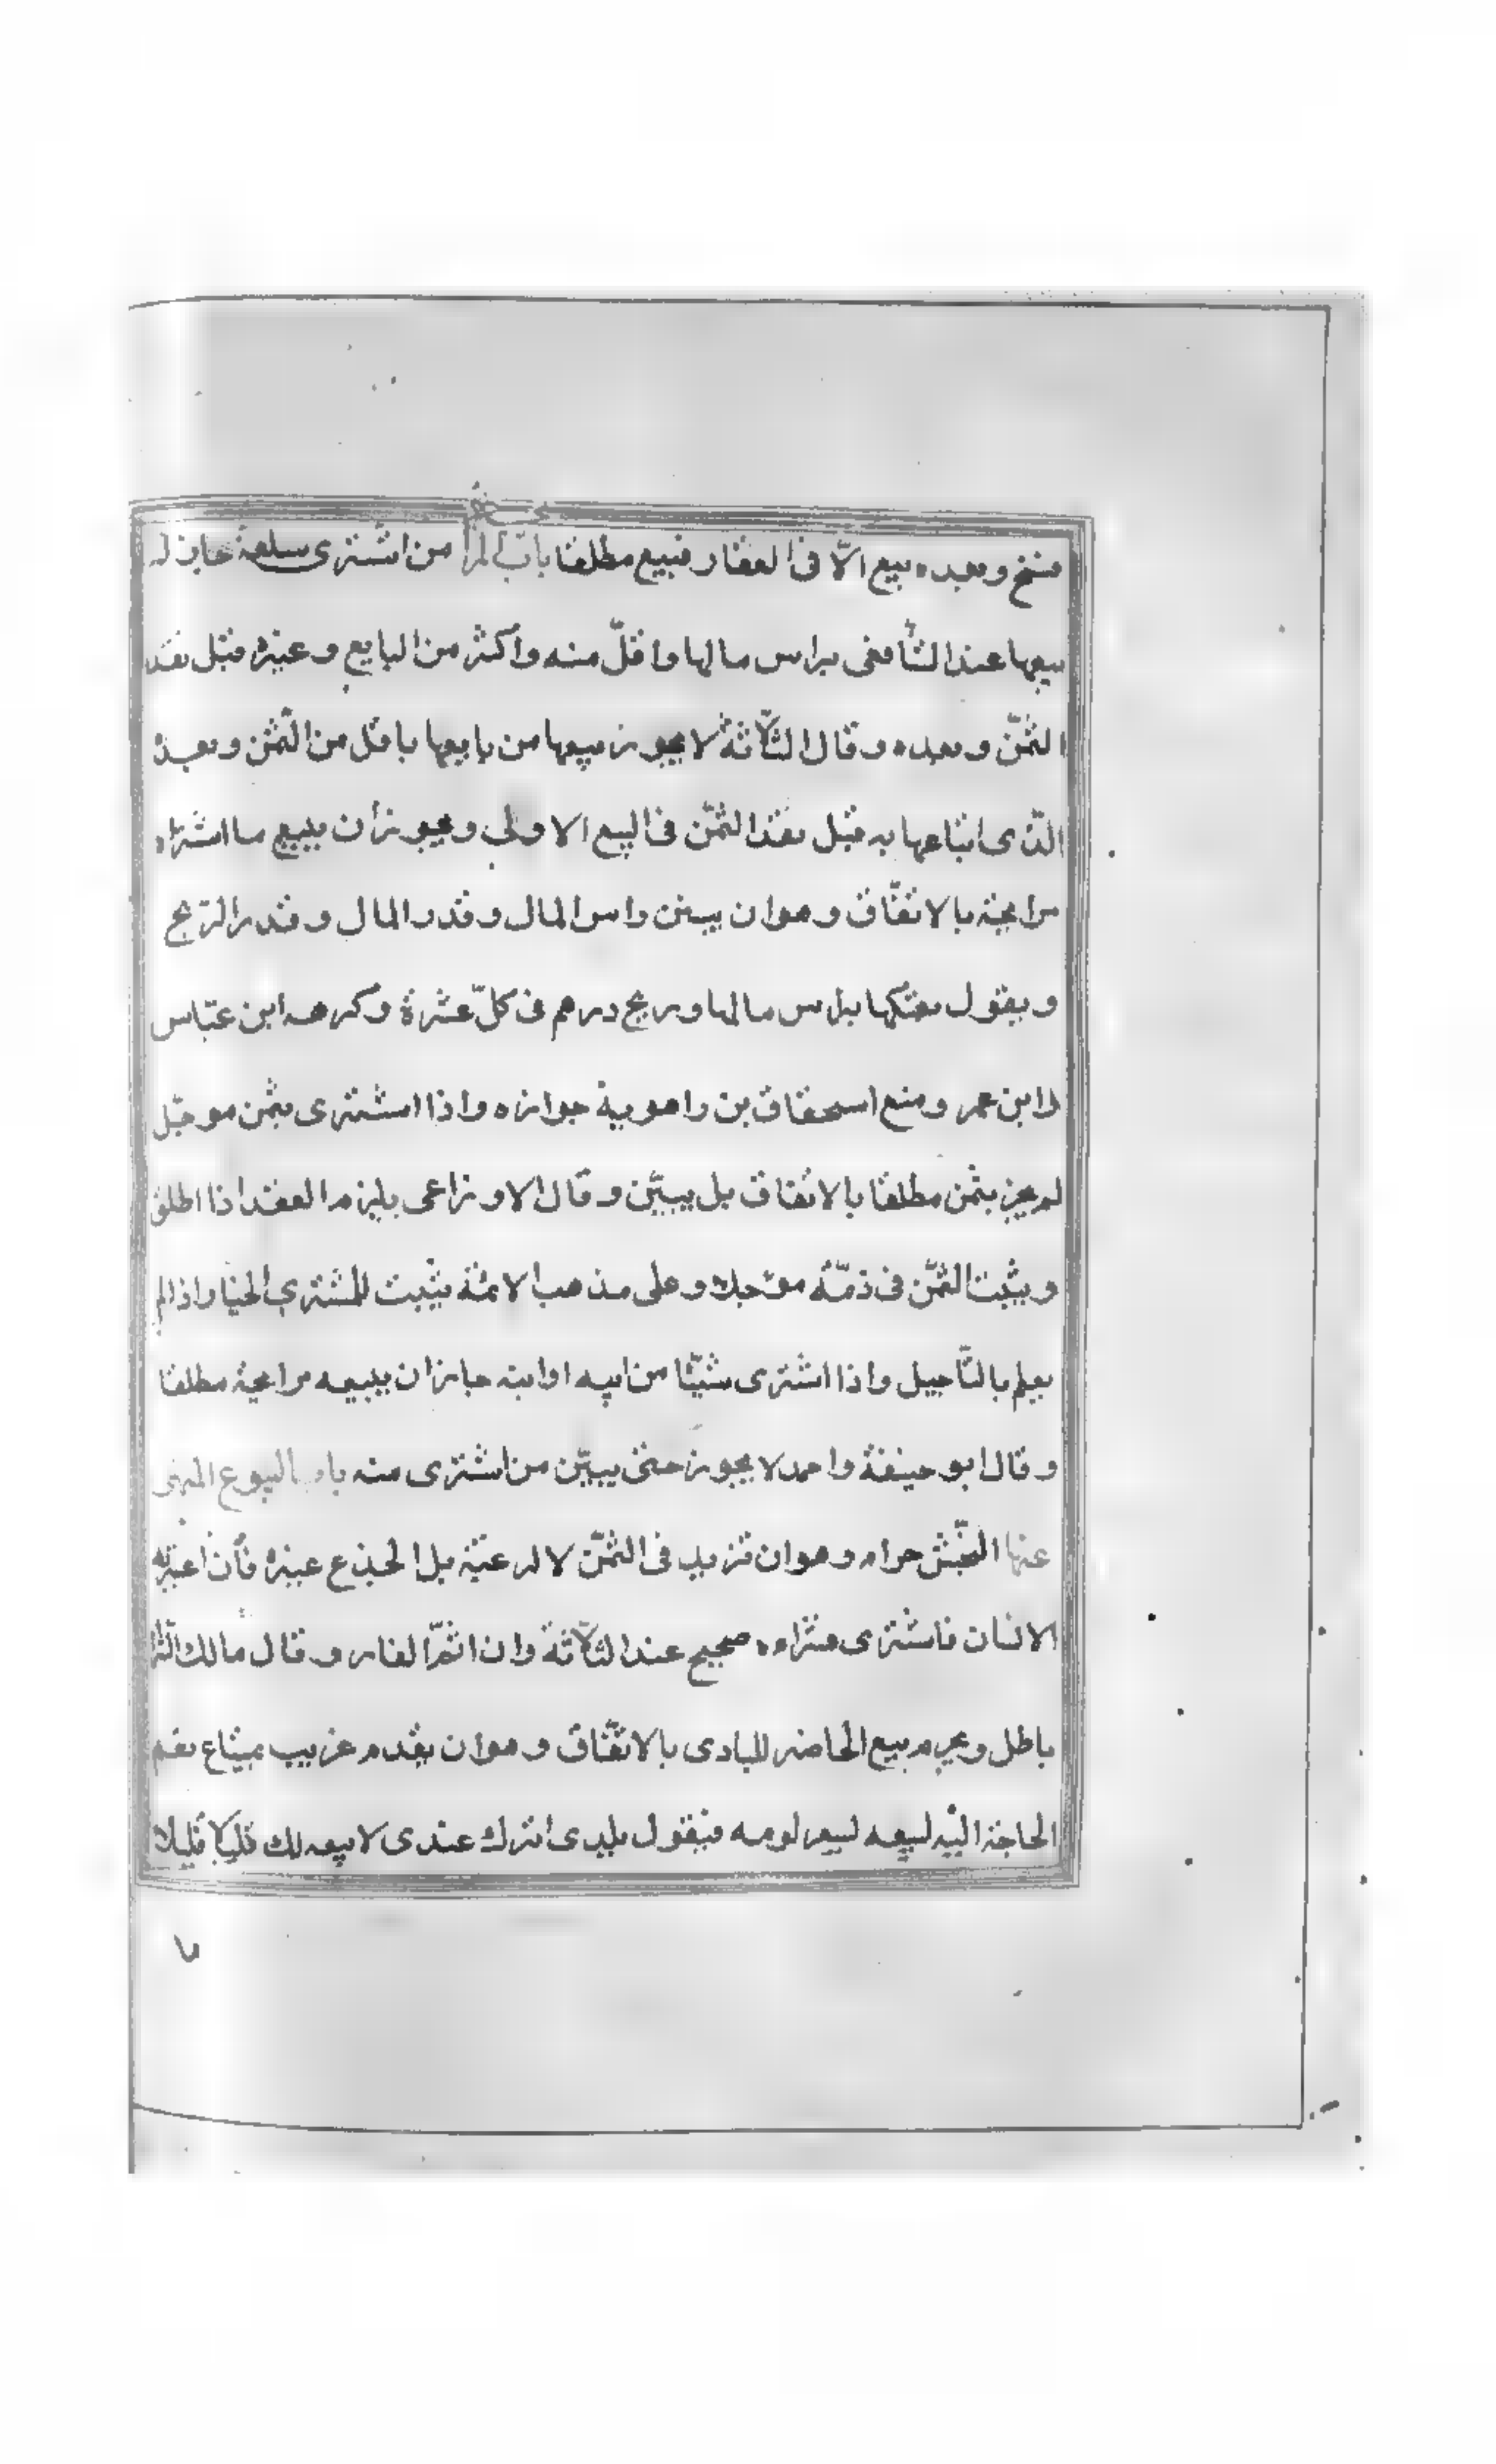 فسخ وبعده بيع الّا فى العقار فبيع مطلقا باب المرابحة من اشترى سلعة جاز له
بيعها عند الشافعى براس مالها واقلّ منه واكثر من البايع وغيره قبل نقد
الثمّن وبعده وقال الثّلاثة لا يجوز بيعها من بايعها باقل من الثّمن وبعده
الّذى ابتاعها به قبل نقد الثمّن فى البيع الاولى ويجوز أن يبيع ما اشتراه
مرابحة بالاتفّاق وهو ان يبين راس المال وقدر المال وقدر الرّبح
ويقول بعتكها براس مالها وربح درهم فى كلّ عشرة وكرهه ابن عبّاس
وابن عمر ومنع اسحقاق بن راهوية جوازه واذا اشترى بثمن موجّل
لم يجز بثمن مطلقا بالاتفاق بل يبيّن وقال الاوزاعى يلزم العقد اذا اطلق
ويثبت الثمّن فى ذمّته مؤجلا وعلى مذهب الائمة يثبت للمشترى الخيار اذا لم
يعلم بالتّأجيل واذا اشترى شيّئا من ابيه او ابنه جاز ان يبيعه مرابحة مطلقا
وقال ابو حنيفة واحمد لا يجوز حتى يبيّن من اشترى منه باب البيوع المنهى
عنها النّجش حرام وهو ان تزيد فى الثمّن لا لرغبة بل الخدع غيره فأن اغترّ به
الانسان فاشترى فشراءه صحيح عند الثّلاثة وان اثمّ الغار وقال مالك الشّرا
باطل ويحرم بيع الحاضر للبادى بالاتفّاق وهو ان يقدم غريب بمتاع تعم
الحاجة اليه لبيعه لسعر لومه فيقول بلدى اترك عندى لابيعه لك قليلا قليلا